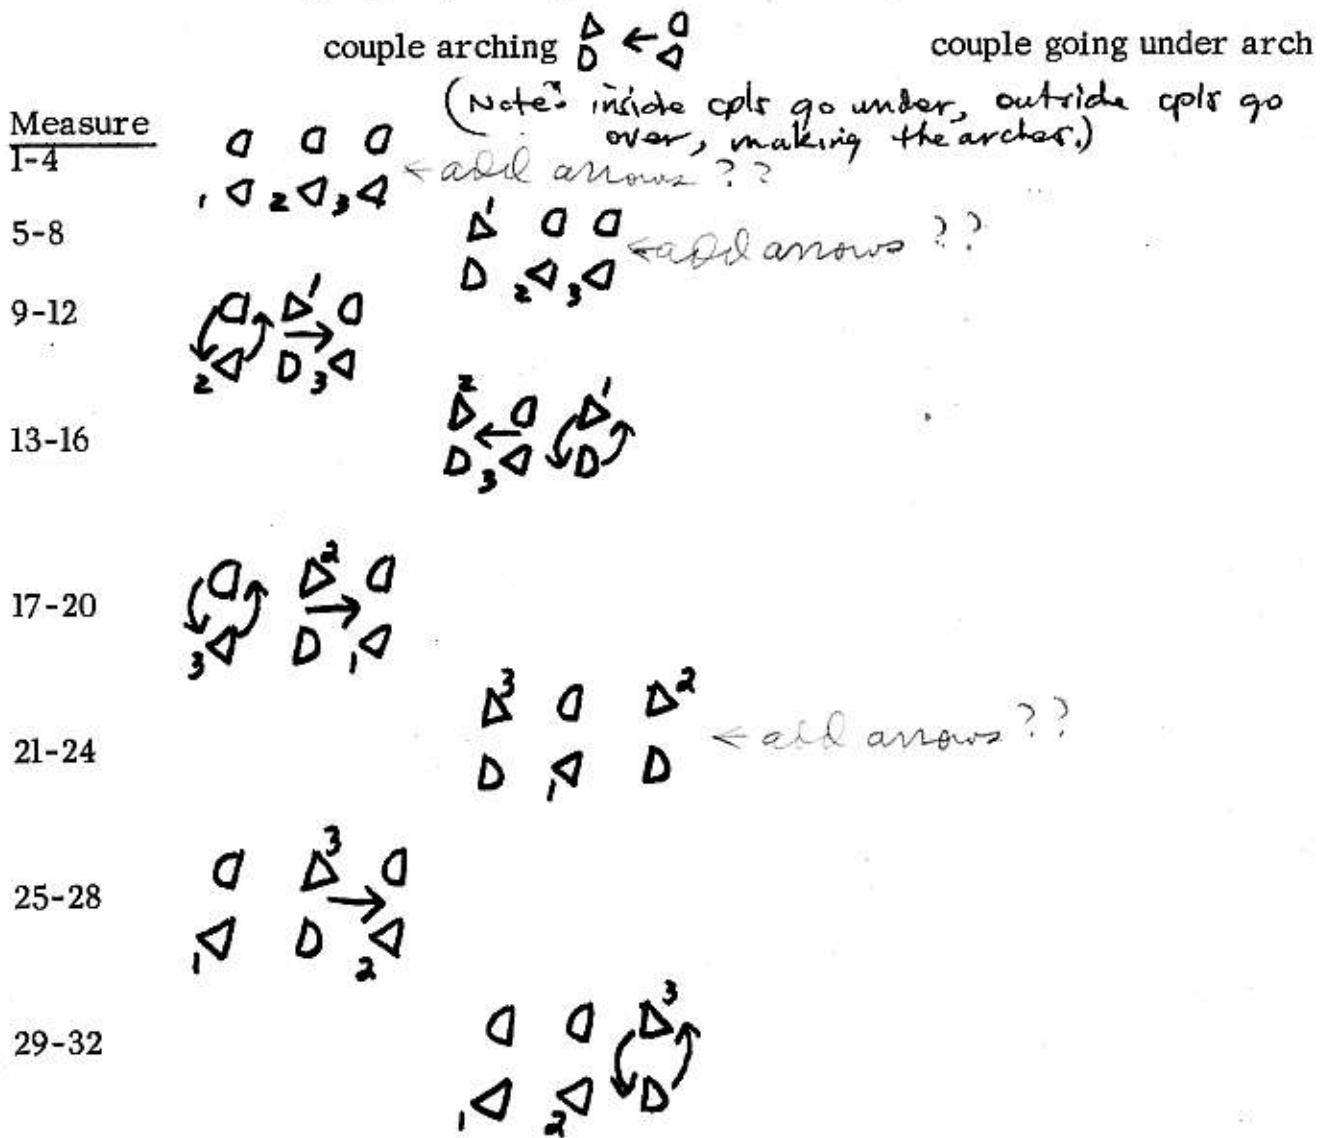 couple arching ← couple going under arch
(Note: inside cpls go under, outside cpls go
over, making the arches.)
Measure
1-4
1 2 3 ← add arrows ??
5-8
1
2 3 ← add arrows ??
9-12
1
2 3
13-16
2 1
3
17-20
2
3 1
21-24
3 2
1 ← add arrows ??
25-28
3
1 2
29-32
3
1 2